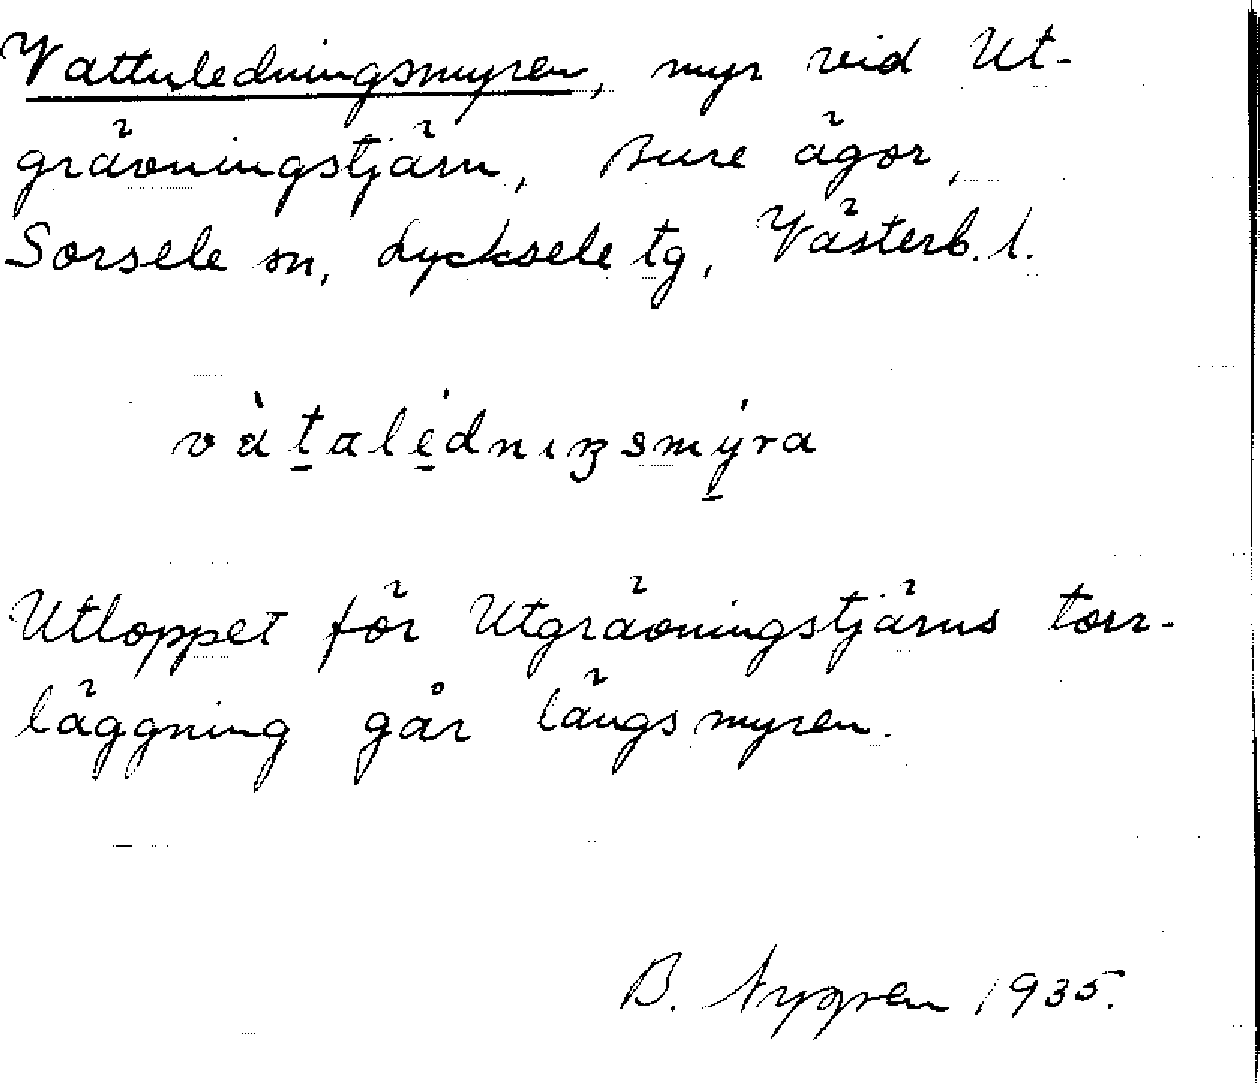 Vattuledningsmyren, myr vid Ut-
grävningstjärn, Bure ägor,
Sorsele sn, Lycksele tg, Västerb. l.
vàt̲alé̲dnıŋsmý̲ra
Utloppet för Utgrävningstjärns torr-
läggning går längs myren.
B. Nygren 1935.